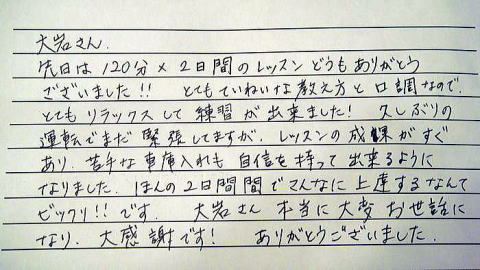 大岩さん.
先日は120分×2日間のレッスンどうもありがとう
ございました!! とてもていねいな教え方と口調なので.
とてもリラックスして練習が出来ました! 久しぶりの
運転でまだ緊張してますが、レッスンの成果がすぐ
あり、苦手な車庫入れも自信を持って出来るように
なりました. 1まんの2日間間でこんなに上達するなんて
ビックリ!!です. 大岩さん本当に大変お世話に
なり、大感謝です! ありがとうございました.